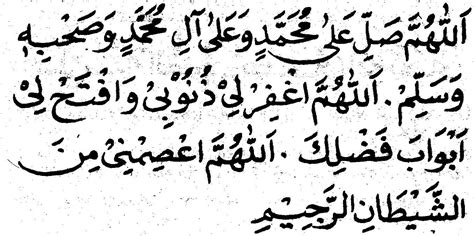 اَللّٰهُمَّ صَلِّ عَلٰى مُحَمَّدٍ وَعَلٰى اٰلِ مُحَمَّدٍ وَصَحْبِهٖ
وَسَلِّمْ . اَللّٰهُمَّ اغْفِرْ لِيْ ذُنُوْبِيْ وَافْتَحْ لِيْ
اَبْوَابَ فَضْلِكَ . اَللّٰهُمَّ اعْصِمْنِيْ مِنَ
الشَّيْطَانِ الرَّجِيْمِ